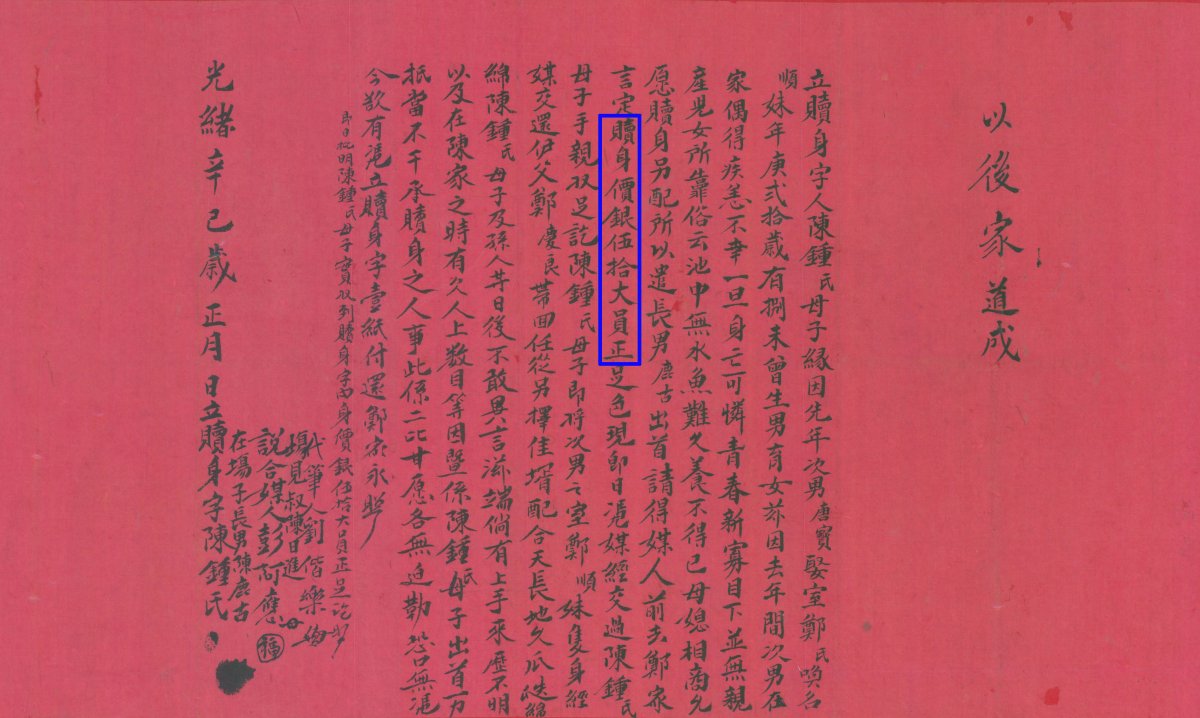 以後家道成
立贖身字人陳鍾氏母子緣因先年次男唐寶娶室鄭氏喚名
順妹年庚弍拾歲有捌未曾生男育女茲因去年間次男在
家偶得疾恙不幸一旦身亡可憐青春新寡目下並無親
產兒女所靠俗云池中無水魚難久養不得已母媳相商允
愿贖身另配所以遣長男唐古出首請得媒人前去鄭家
言定贖身價銀伍拾大員正足色現即日憑媒經交過陳鍾氏
母子手親收足訖陳鍾氏母子即將次男之室鄭順妹隻身經
媒交還伊父鄭慶良帶回任從另擇佳壻配合天長地久瓜瓞綿
綿陳鍾氏母子及孫人等日後不敢異言滋端倘有上手來歷不明
以及在陳家之時有欠人上數目等因暨係陳鍾氏母子出首一力
抵當不干承贖身之人事此係二比甘愿各無迫勒恐口無憑
今欲有憑立贖身字壹紙付還鄭家永照
即日批明陳鍾氏母子實收到贖身字內身價銀伍拾大員正足訖照
代筆人劉偕樂
塲見叔陳日進
說合媒人彭阿應
在塲子長男陳唐古
光緒辛巳歲正月日立贖身字陳鍾氏